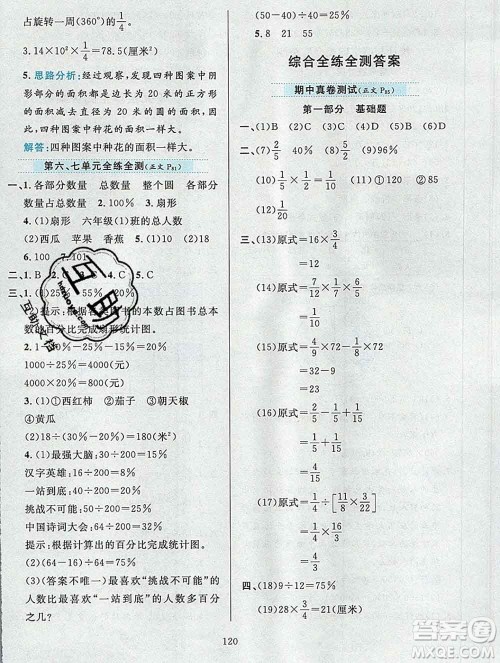 占旋转一周(360°)的1/4。
3.14×10²×1/4＝78.5(厘米)
5. 思路分析：经过观察，发现四种图案中阴
影部分的面积都是边长为 20 米的正方形
的面积减去直径是 20 米的圆的面积，因
此，四种图案中种花的面积一样大。
解答：四种图案中种花的面积一样大。
第六、七单元全练全测(正文 P81)
一、1. 各部分数量　总数量　整个圆　各部分
数量占总数量　2. 100%　3. 扇形
4. (1)扇形　六年级(1)班的总人数
(2)西瓜　苹果　香蕉　5. (1)(2)18
6. 100
二、1. B　C　4. C　5. C
三、1. (1)25%　20%
(2)提示：根据各类图书的本数占图书总本
数的百分比完成扇形统计图。
2. 1－20%－55%＝25%
1000÷25%＝4000(元)
4000×20%＝800(元)
3. (1)①西红柿　②茄子　③朝天椒
④黄瓜
(2)18÷(30%－20%)＝180(米²)
四、1. (1)最强大脑：60÷200＝30%
汉字英雄：36÷200＝18%
一站到底：40÷200＝20%
挑战不可能：50÷200＝25%
中国诗词大会：64÷200＝32%
提示：根据计算出的百分比完成统计图。
(2)64÷200＝32%
(3)(答案不唯一)最喜欢“挑战不可能”的
人数比最喜欢“一站到底”的人数多百分
之几？
(50－40)÷40＝25%
5. 8　21　55
综合全练全测答案
期中真卷测试(正文 P85)
第一部分　基础题
一、(1)D　(2)C　(3)C　(4)B　(5)D　(6)C
二、(7)9　5　75　(8)3/8　5/8　(9)75%
(10)1/20　(11)①120　②60　(12)1/2
1/20
三、(13)原式＝16×3/4
＝12
(14)原式＝7/10×1/7×5/8
＝1/16
(15)原式＝3/4×72－1/8×72
＝32－9
(16)原式＝2/5－1/6＋1/15
＝7/30＋1/15
(17)原式＝1/4÷[11/8×3/22]
四、(18)9÷12＝75%
(19)28×3/4＝21(厘米)
120
互助
互助文档
答案圈
MXQE.COM